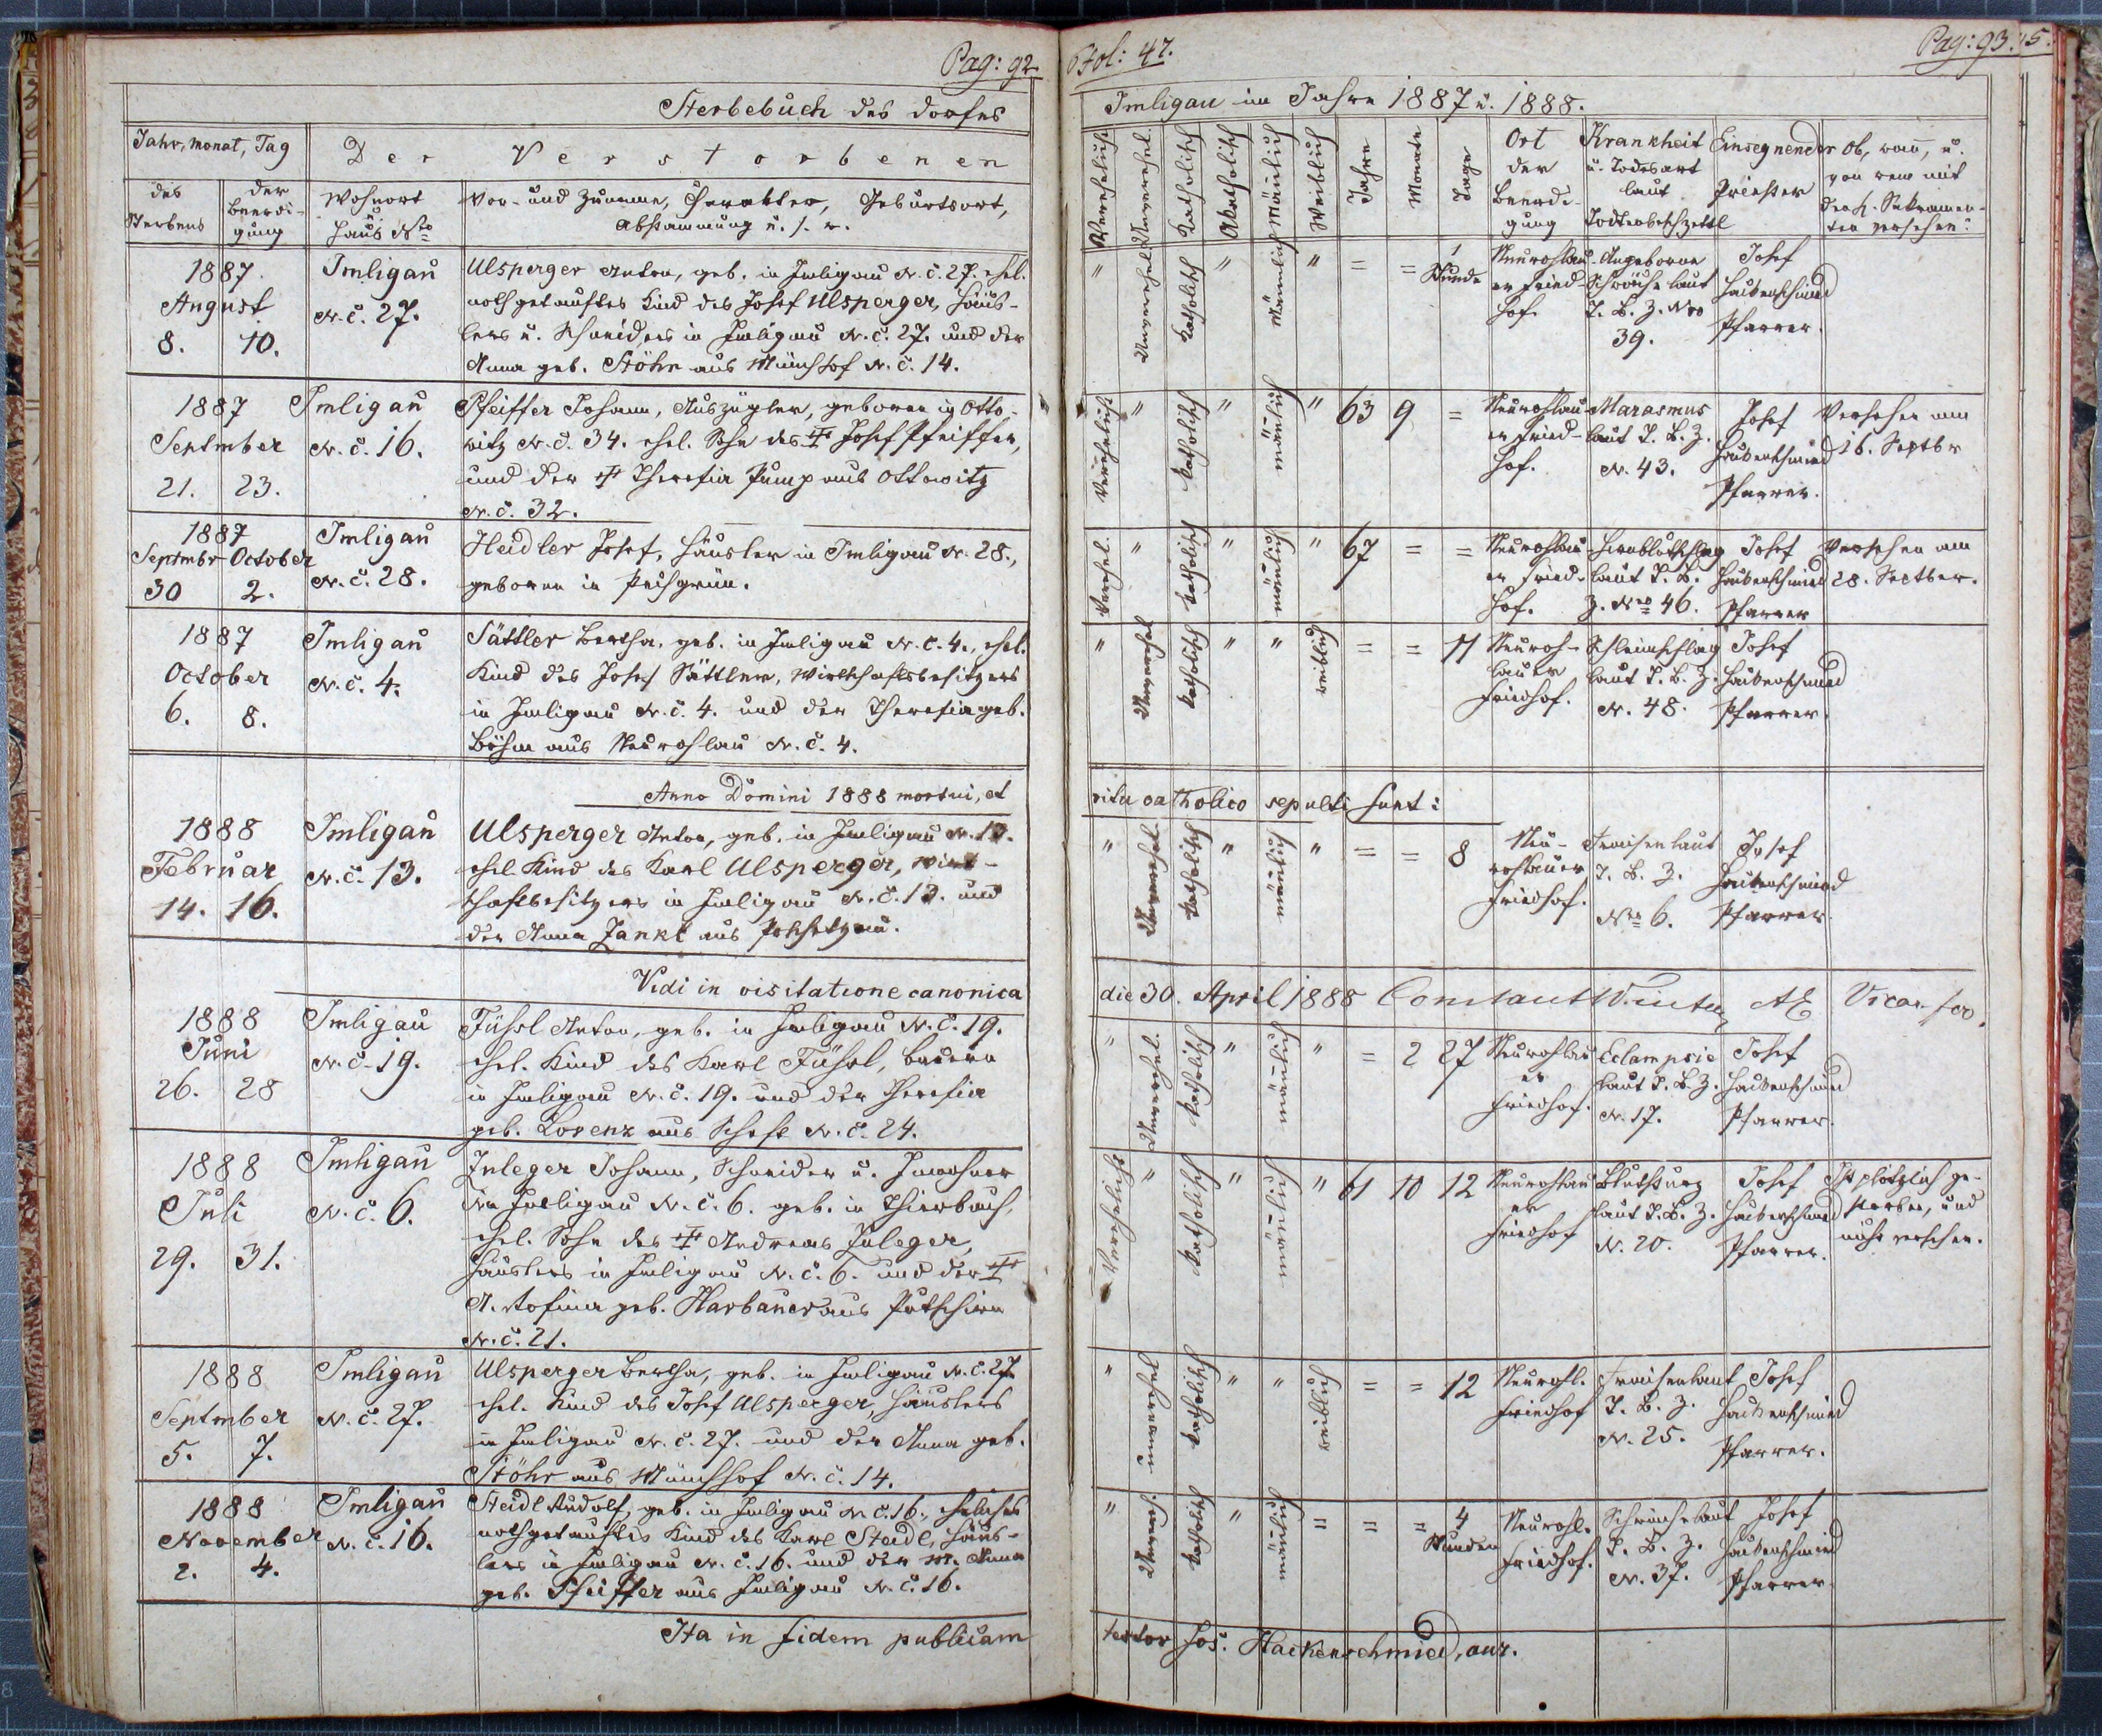 Pag: 92.
Sterbebuch des dorfes
Jahr, Monat, Tag
Der Verstorbenen
des Sterbens
der Beerdigung
Wohnort u. Haus Nro
Vor- und Zuname, Charakter, Geburtsort,
Abstammung u. s. w.
1887. August 8. 10.
Imligau N. c. 27.
Ulsperger Anton, geb. in Imligau N. c. 27. ehel.
nothgetauftes Kind des Josef Ulsperger, Häus-
lers u. Schneiders in Imligau N. c. 27. und der
Anna geb. Stöhr aus Münchhof N. c. 14.
1887 Septmber 21. 23.
Imligau N. c. 16.
Pfeiffer Johann, Auszügler, geboren in Otto-
witz N. c. 34. ehel. Sohn des † Josef Pfeiffer,
und der † Theresia Pump aus Ottowitz
N. c. 32.
1887 Septmbr October 30 2.
Imligau N. c. 28.
Heidler Josef, Häusler in Imligau N. 28.,
geboren in Pechgrün.
1887 October 6. 8.
Imligau N. c. 4.
Sättler Bertha, geb. in Imligau N. c. 4., ehel.
Kind des Josef Sättler, Wirthschaftsbesitzers
in Imligau N. c. 4. und der Theresia geb.
Böhm aus Neurohlau N. c. 4.
Anno Domini 1888 mortui, et
1888 Februar 14. 16.
Imligau N. c. 13.
Ulsperger Anton, geb. in Imligau N. 13.
ehel. Kind des Karl Ulsperger, Wirt-
schaftsbesitzers in Imligau N. c. 13. und
der Anna Zankl aus
Vidi in visitatione canonica
1888 Juni 26. 28
Imligau N. c. 19.
Füssl Anton, geb. in Imligau N. c. 19.
ehel. Kind des Karl Füssl, Bauern
in Imligau N. c. 19. und der Theresia
geb. Lorenz aus N. c. 24.
1888 Juli 29. 31.
Imligau N. c. 6.
Zuleger Johann, Schneider u. Inwohner
in Imligau N. c. 6. geb. in Thierbach,
ehel. Sohn des † Andreas Zuleger,
Häuslers in Imligau N. c. 6. und der †
A. Rosina geb. Harbauer aus Putschirn
N. c. 21.
1888 Septmber 5. 7.
Imligau N. c. 27.
Ulsperger Bertha, geb. in Imligau N. c. 27
ehel. Kind des Josef Ulsperger, Häuslers
in Imligau N. c. 27. und der Anna geb.
Stöhr aus Münchhof N. c. 14.
1888 November 2. 4.
Imligau N. c. 16.
Steidl Rudolf, geb. in Imligau N. c. 16., eheliches
nothgetauftes Kind des Karl Steidl, Häus-
lers in Imligau N. c. 16. und der M. Anna
geb. Pfeiffer aus Imligau N. c. 16.
Ita in fidem publicam
Fol: 47.
Pag: 93.
Imligau im Jahre 1887 u. 1888.
Verehelicht
Unverehel.
Katholisch
Akatholisch
Mänlich
Weiblich
Jahre
Monate
Tage
Ort der Beerdigung
Krankheit u. Todesart laut Todtenbeschzettl
Einsegnender Priester
Ob, wan, u. von wem mit den h. Sakramenten versehen?
" Unverehel Katholisch " Männlich " = = 1 Stunde
Neurohlauer Friedhof.
Angeborne Schwäche laut T. B. Z. Nro 39.
Josef Hackenschmied Pfarrer.
Verehelicht " Katholisch " mänlich " 63 9 =
Neurohlauer Friedhof.
Marasmus laut T. B. Z. N. 43.
Josef Hackenschmied Pfarrer.
Versehen am 16. Septbr
Verehel. " Katholisch " mänlich " 67 = =
Neurohlauer Friedhof.
Hirnblutschlag laut T. B. Z. Nro 46.
Josef Hackenschmied Pfarrer
Versehen am 28. Septber.
" Unverehel Katholisch " " weiblich = = 11
Neurohlauer Friedhof.
laut T. B. Z. N. 48.
Josef Hackenschmied Pfarrer.
ritu catholico sepulti sunt:
" Unverehel. Katholisch " mänlich " = = 8
Neurohlauer Friedhof.
Fraisen laut T. B. Z. Nro 6.
Josef Hackenschmied Pfarrer.
die 30. April 1888 Constant Winter, AE Vicar. for.
" Unverehel. Katholisch " mänlich " = 2 27
Neurohlauer Friedhof.
Eclampsie laut T. B. Z. N. 17.
Josef Hackenschmied Pfarrer.
Verehelicht " Katholisch " mänlich " 61 10 12
Neurohlauer Friedhof
Blutsturz laut T. B. Z. N. 20.
Josef Hackenschmied Pfarrer.
Ist plötzlich gestorben, und nicht versehen.
" unverehel Katholisch " " weiblich = = 12
Neurohl. Friedhof
Fraisen laut T. B. Z. N. 25.
Josef Hackenschmied Pfarrer.
" Unvereh. Katholisch " mänlich = = = 4 Stunden
Neurohl. Friedhof.
Schwäche laut T. B. Z. N. 37.
Josef Hackenschmied Pfarrer.
testor Jos: Hackenschmied, cur.